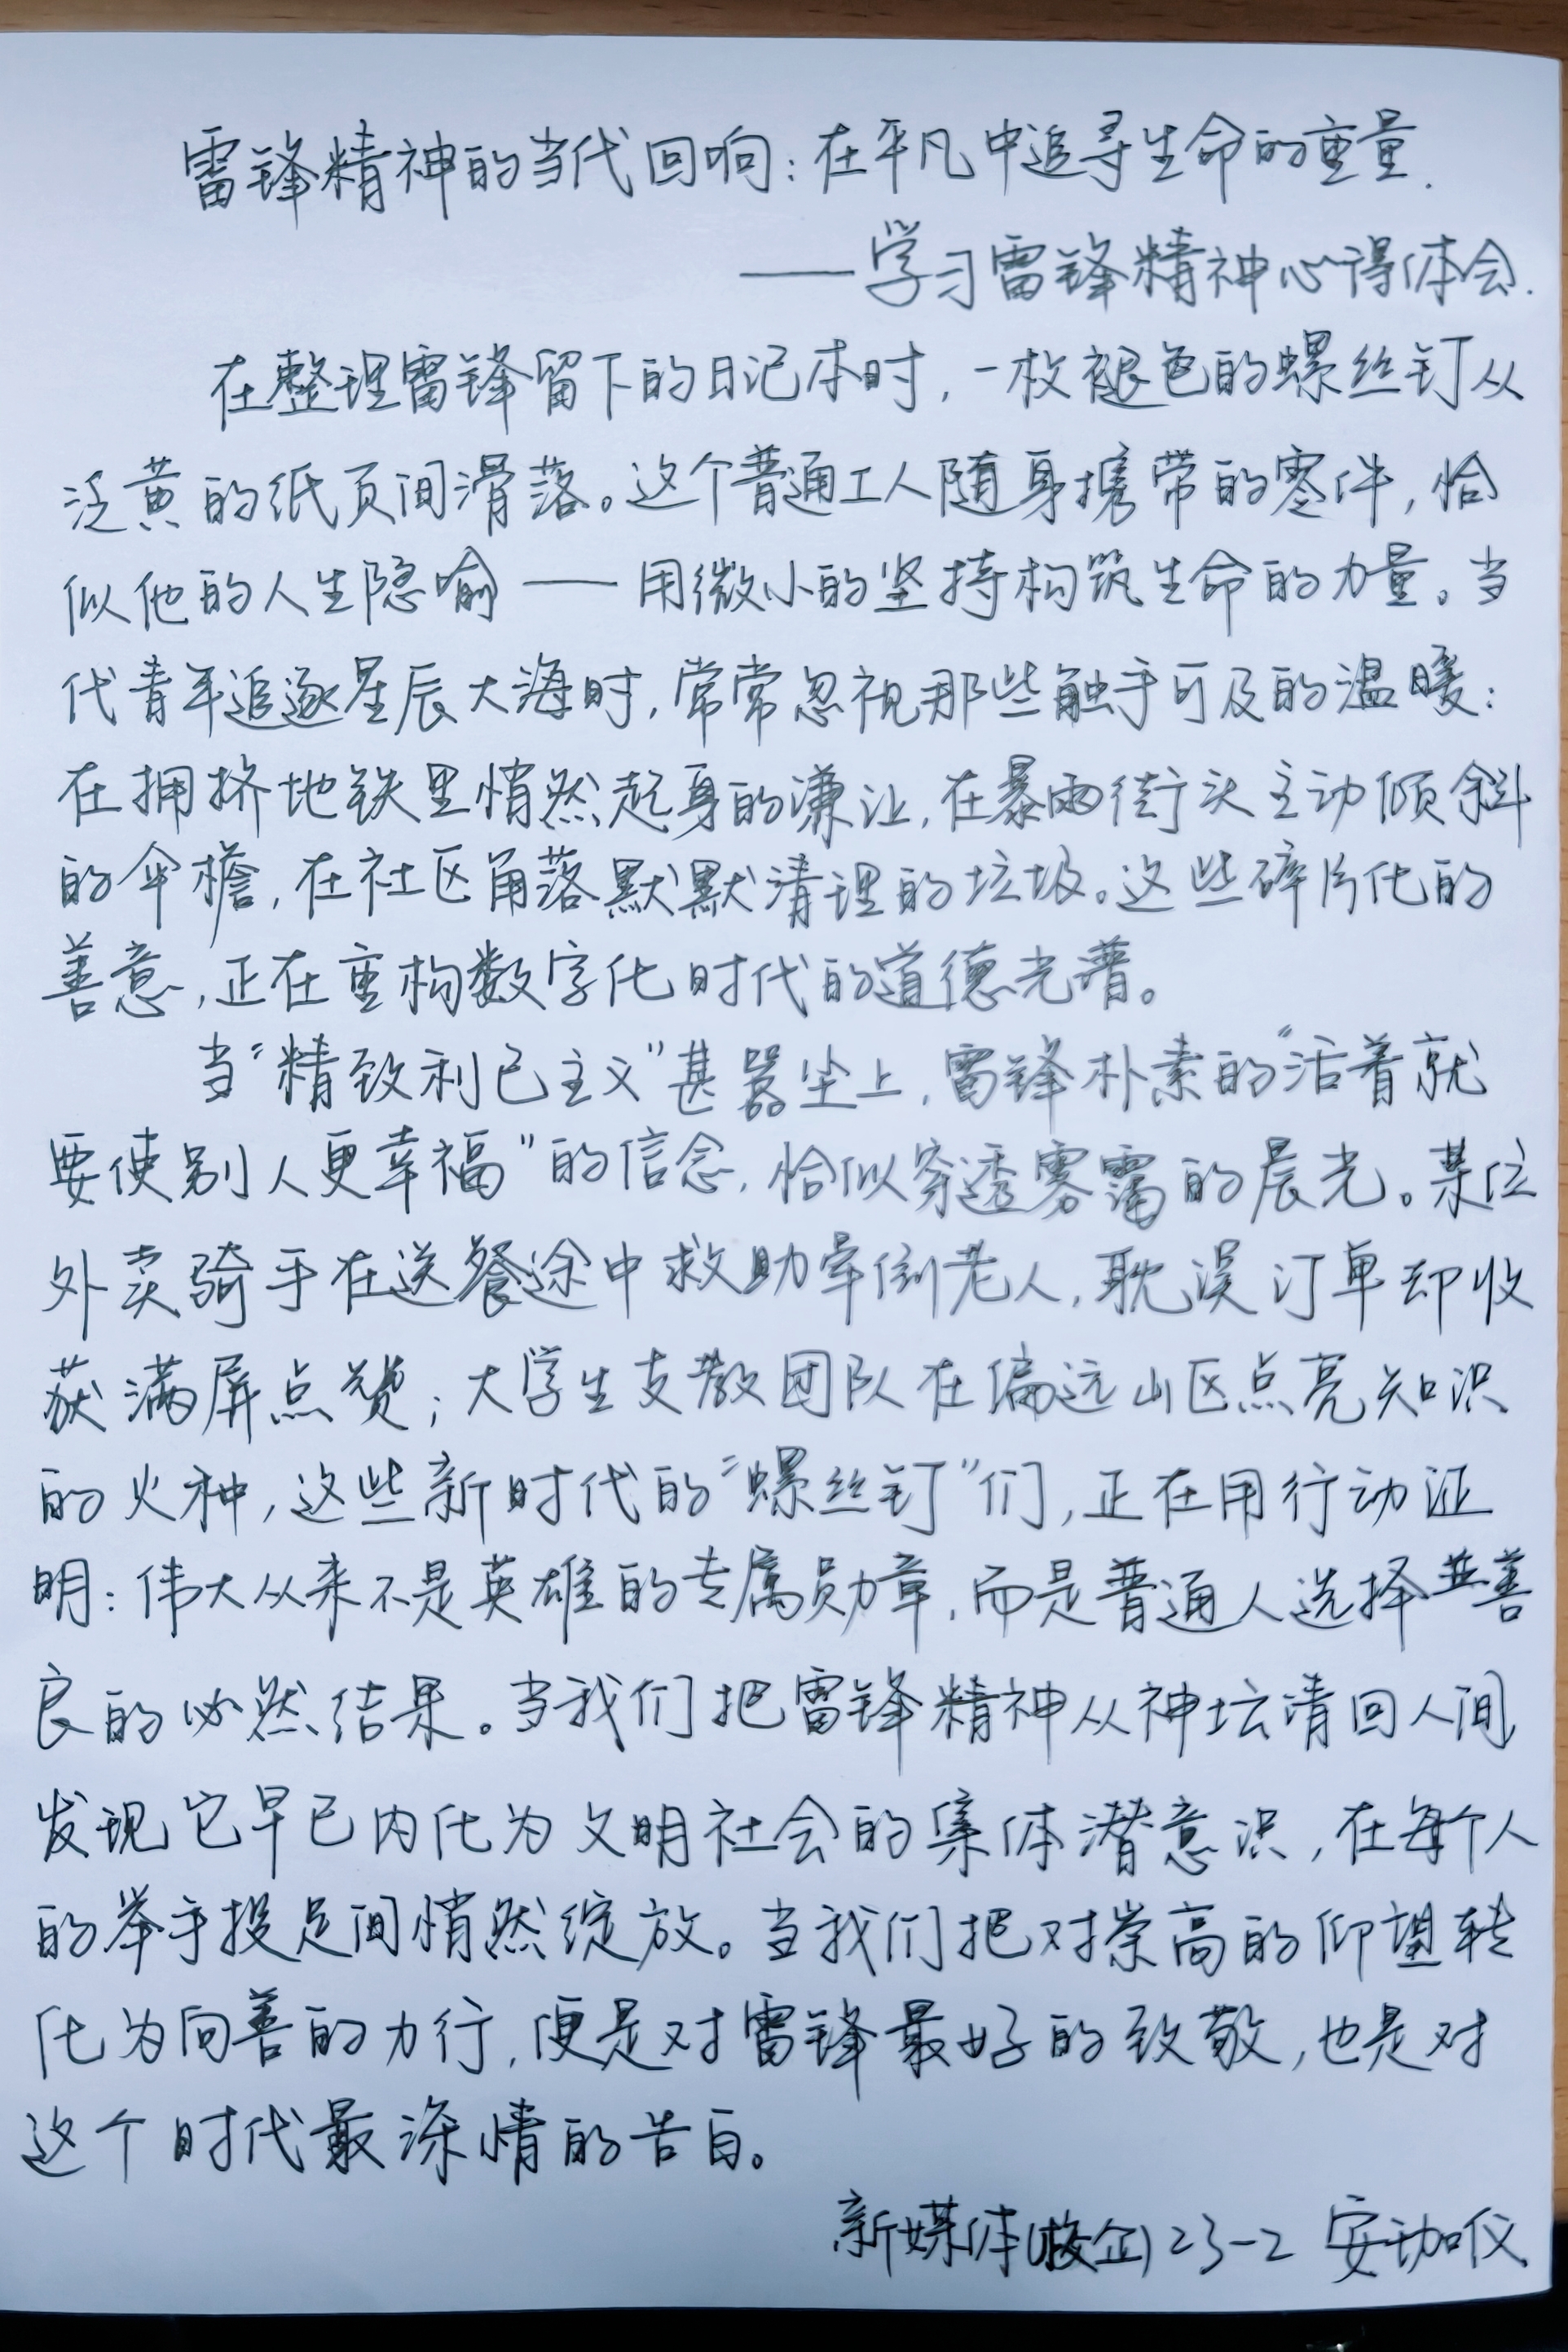 雷锋精神的当代回响：在平凡中追寻生命的重量.
——学习雷锋精神心得体会.
在整理雷锋留下的日记本时，一枚褪色的螺丝钉从
泛黄的纸页间滑落。这个普通工人随身携带的零件，恰
似他的人生隐喻——用微小的坚持构筑生命的力量。当
代青年追逐星辰大海时，常常忽视那些触手可及的温暖：
在拥挤地铁里悄然起身的谦让，在暴雨街头主动倾斜
的伞檐，在社区角落默默清理的垃圾。这些碎片化的
善意，正在重构数字化时代的道德光谱。
当“精致利己主义”甚嚣尘上，雷锋朴素的“活着就
要使别人更幸福”的信念，恰似穿透雾霭的晨光。某位
外卖骑手在送餐途中救助晕倒老人，耽误订单却收
获满屏点赞；大学生支教团队在偏远山区点亮知识
的火种，这些新时代的“螺丝钉”们，正在用行动证
明：伟大从来不是英雄的专属勋章，而是普通人选择善
良的必然结果。当我们把雷锋精神从神坛请回人间
发现它早已内化为文明社会的集体潜意识，在每个人
的举手投足间悄然绽放。当我们把对崇高的仰望转
化为向善的力行，便是对雷锋最好的致敬，也是对
这个时代最深情的告白。
新媒体(校企)23-2 安珈仪